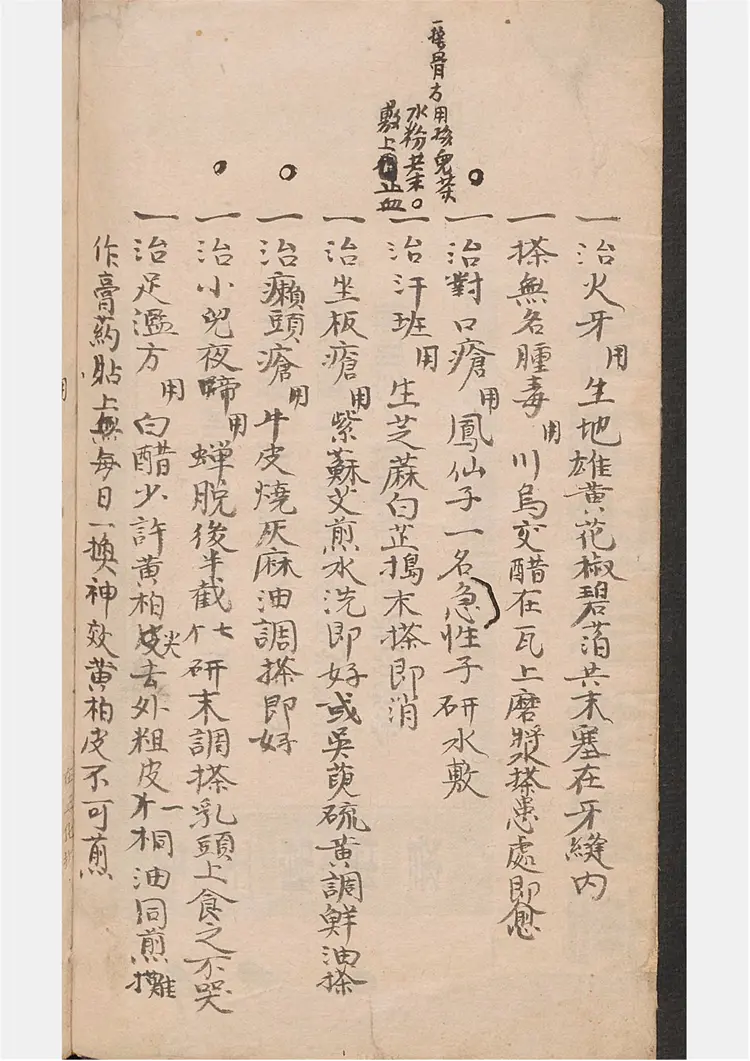 一接骨方用孩兒茶
水粉共末。
敷上止血
一治火牙用生地雄黃花椒碧萡共末塞在牙縫內
一搽無名腫毒用川烏交醋在瓦上磨漿搽患處即愈
一治對口瘡用鳳仙子一名急性子研水敷
一治汗班用生芝蔴白芷搗末搽即消
一治坐板瘡用紫蘇艾煎水洗即好或吳萸硫黃調鮮油搽
一治癩頭瘡用牛皮燒灰麻油調搽即好
一治小兒夜啼用蟬脫後半截七个研末調搽乳頭上食之不哭
一治足濫方用白醋少許黃柏皮去外粗皮一桐油同煎攤
作膏药貼上每日一換神效黃柏皮不可煎